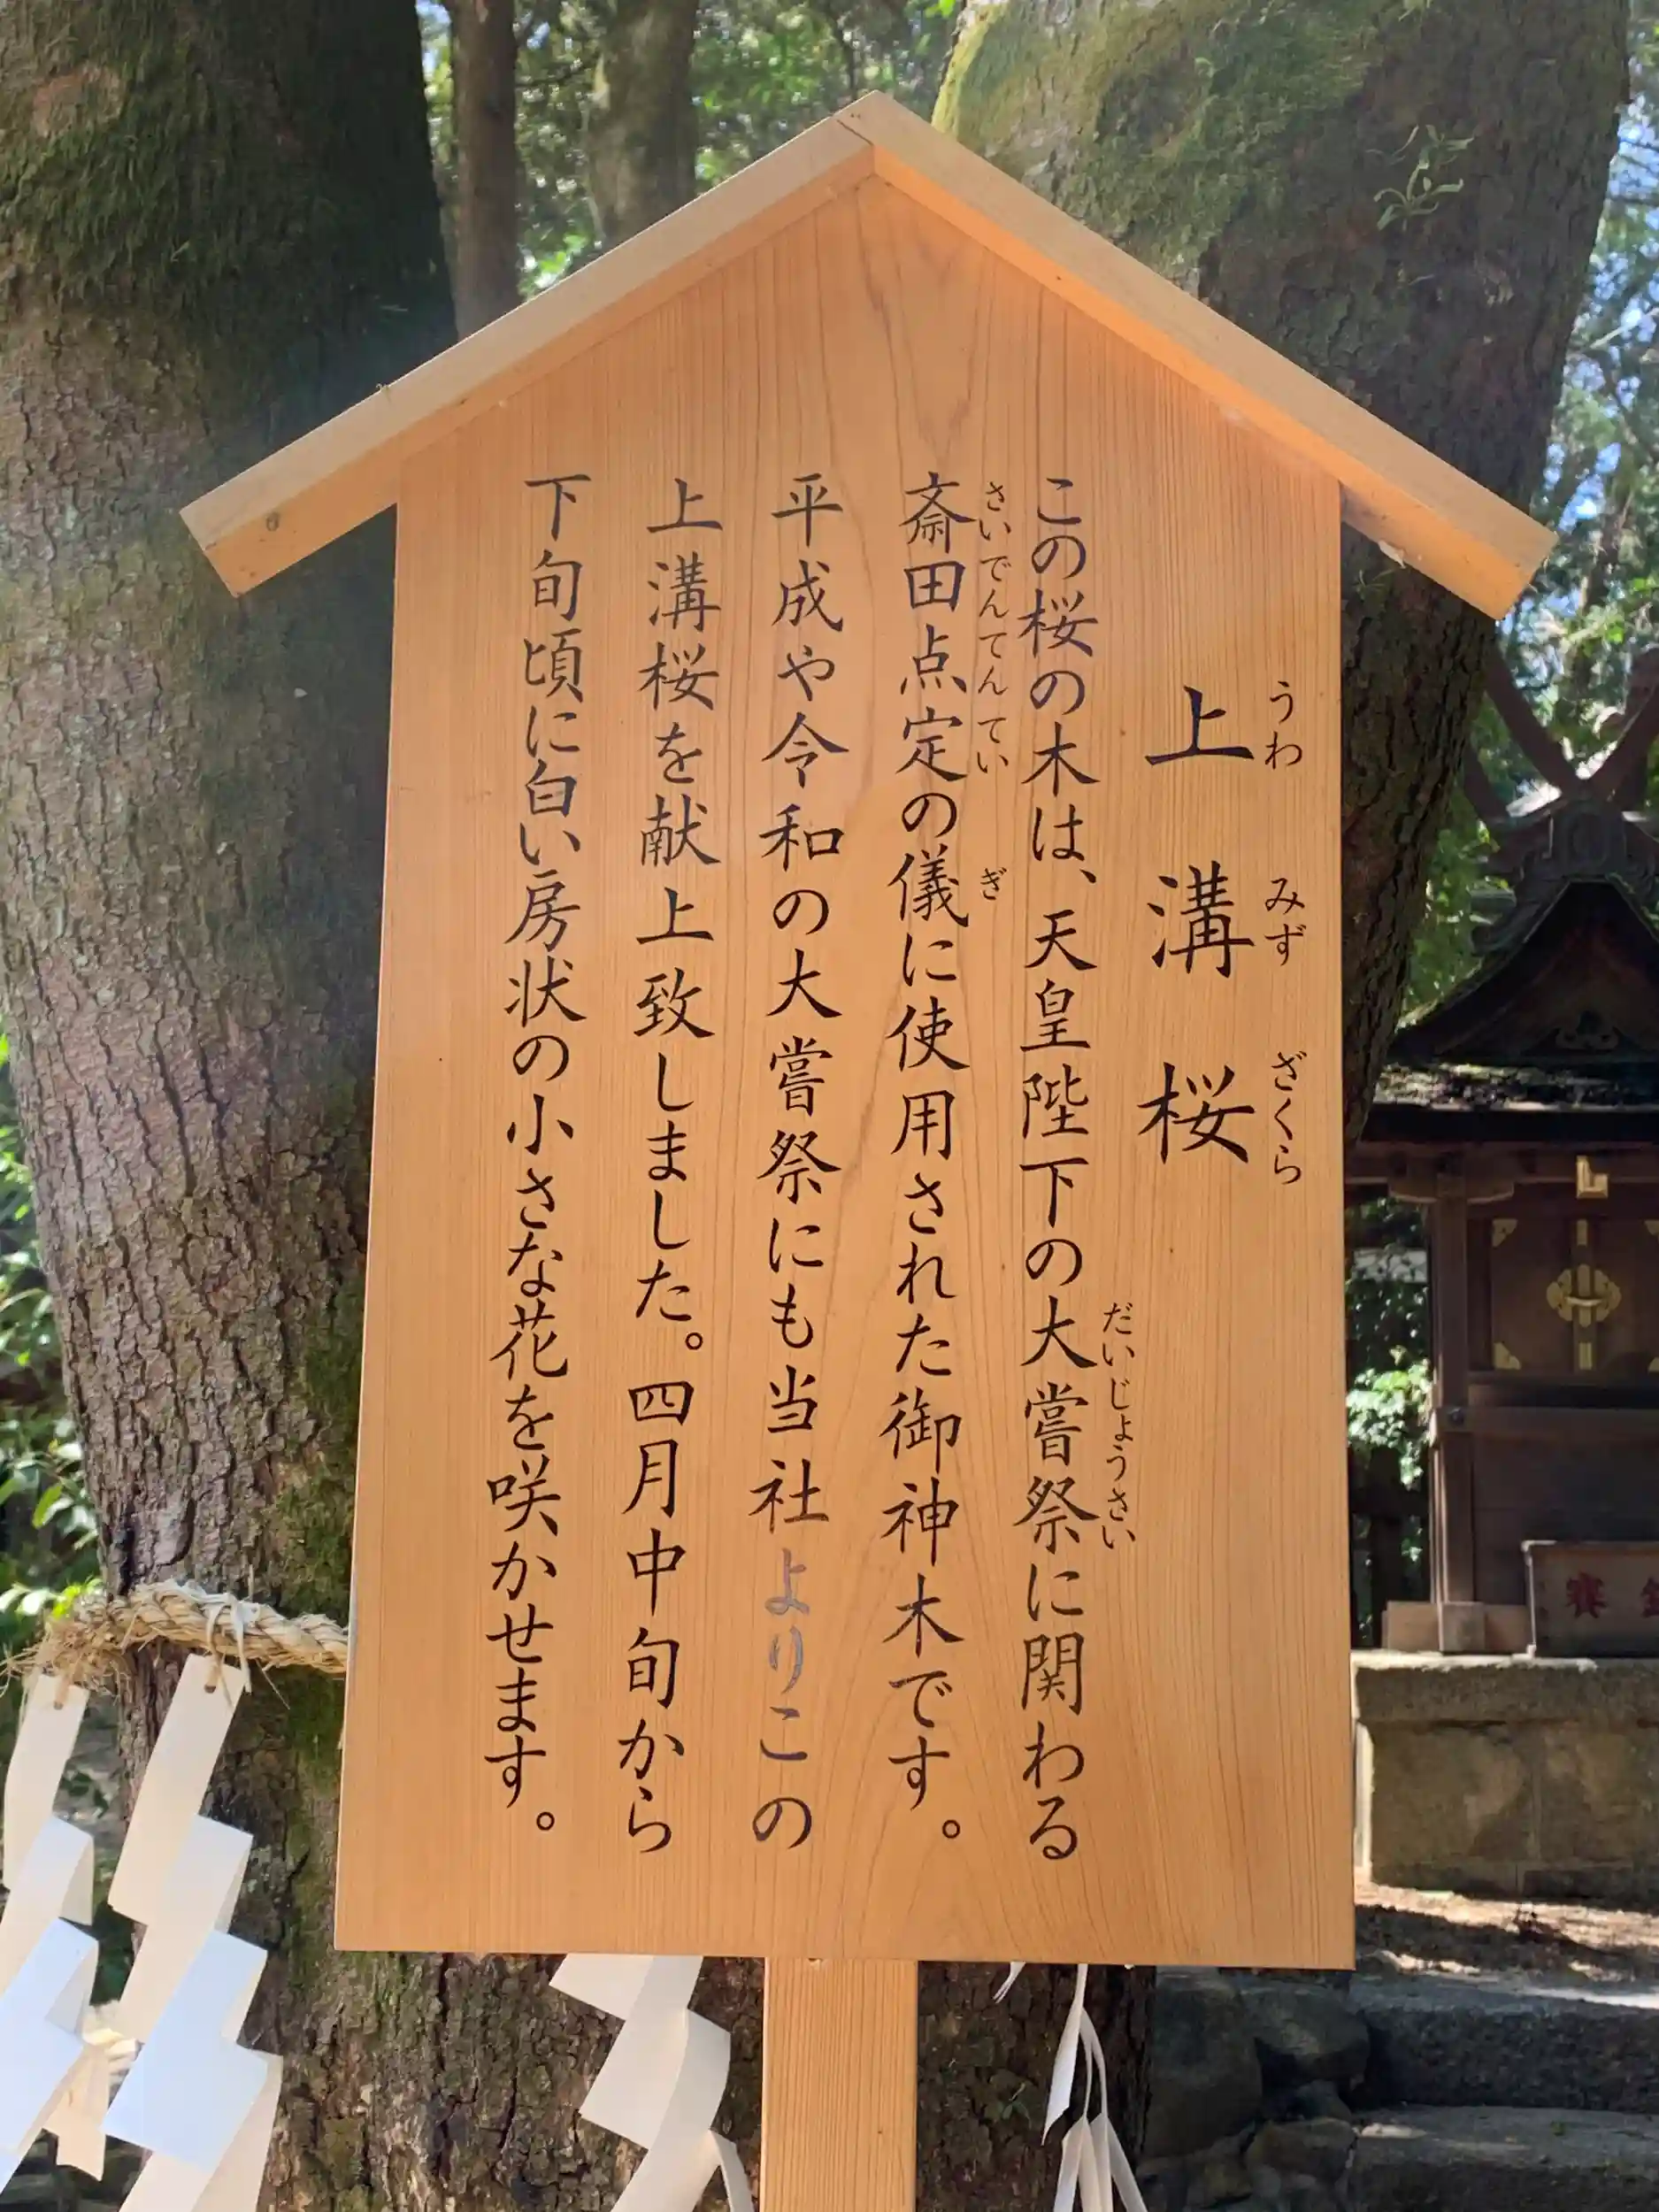 上溝桜
うわみずざくら
この桜の木は、天皇陛下の大嘗祭に関わる
だいじょうさい
斎田点定の儀に使用された御神木です。
さいでんてんてい ぎ
平成や令和の大嘗祭にも当社よりこの
上溝桜を献上致しました。四月中旬から
下旬頃に白い房状の小さな花を咲かせます。
賽